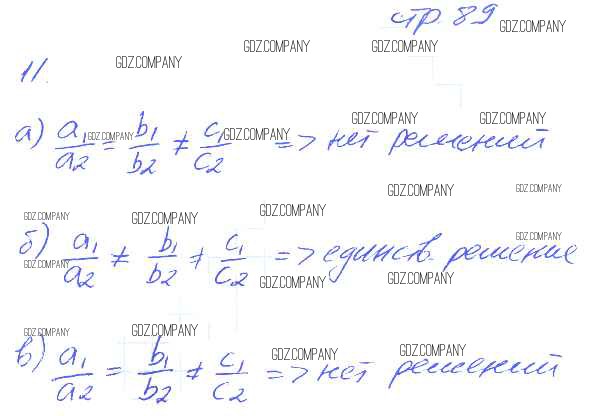 стр. 89
GDZ.COMPANY
GDZ.COMPANY GDZ.COMPANY
11. GDZ.COMPANY
GDZ.COMPANY GDZ.COMPANY
а) a₁/a₂ = b₁/b₂ ≠ c₁/c₂ => нет решений
GDZ.COMPANY GDZ.COMPANY
GDZ.COMPANY GDZ.COMPANY
GDZ.COMPANY GDZ.COMPANY GDZ.COMPANY
GDZ.COMPANY
б) a₁/a₂ ≠ b₁/b₂ ≠ c₁/c₂ => единств. решение
GDZ.COMPANY GDZ.COMPANY GDZ.COMPANY
GDZ.COMPANY GDZ.COMPANY
GDZ.COMPANY GDZ.COMPANY
в) a₁/a₂ = b₁/b₂ ≠ c₁/c₂ => нет решений